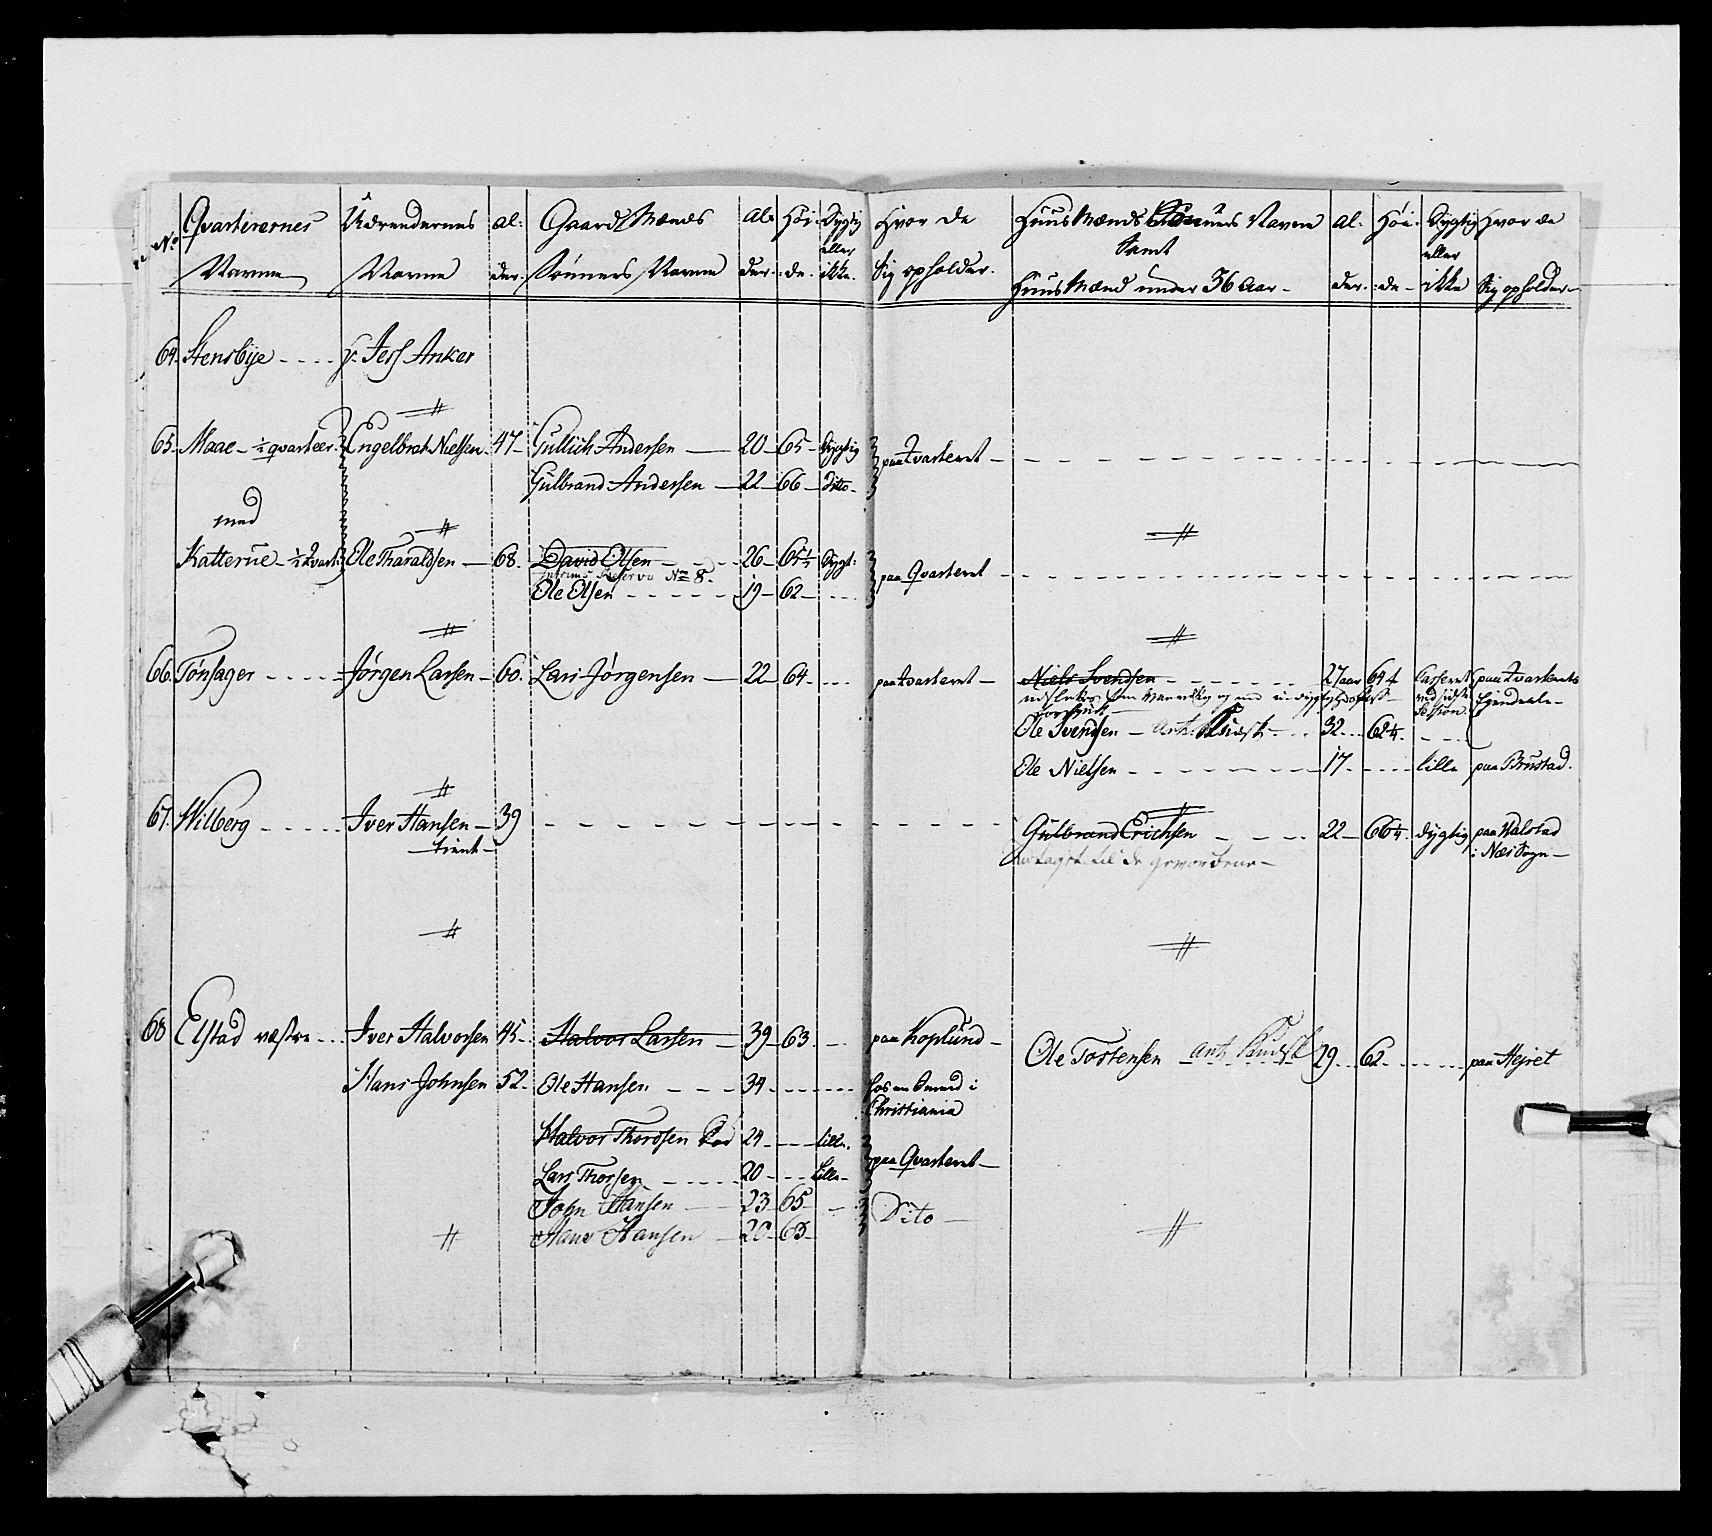 No Qvarterernes Navne
Værendernes Navne
Al: der.
Gaard Mænds Sønners Navne
Al: der.
Høi: de.
Dygtig eller ikke.
Hvor de Sig opholder.
Huus Mænds Sønners Navne Samt Huus Mænd under 36 Aar
Al. der.
Høi: de
Dygtig eller ikke
Hvor de Sig opholder
64. Stensbye Jess Anker
65. Maae ½ qvarteer. Engelbret Nielsen 47 Gullich Andersen 20 65 dygtig paa Qvarteret
Gulbrand Andersen 22 66 ditto
med
Katterue ½ Qvart: Ole Tharaldsen 68. David Olsen 26 65½ dygt: paa Qvarteret
Reserve No 8.
Ole Olsen 19 62
66. Tønsager Jørgen Larsen 60. Lars Jørgensen 22 64 paa Qvarteret Niels Svendsen 27 aar 64¼ Casseret paa Qvarterets
ved sidste Session Ejendeele
Ole Svendsen 32 62¼
Ole Nielsen 17 lille paa Brustad.
67. Wilberg Iver Hansen 39 Gulbrand Erichsen 22 66¼ dygtig paa Walstad
tient i Næs Sogn
antaget til de gevorbene
68 Elstad væstre Iver Halvorsen 45 Halvor Larsen 39 63 paa Koplund Ole Tostensen 29 62 paa Hejret
Hans Johnsen 52 Ole Hansen 34 hos en Smed i
Christiania
Halvor Thordsen Død 24 lill.
Lars Thorsen 20 Lille paa Qvarteret
John Hansen 23 65
Hans Hansen 20 63 Dito